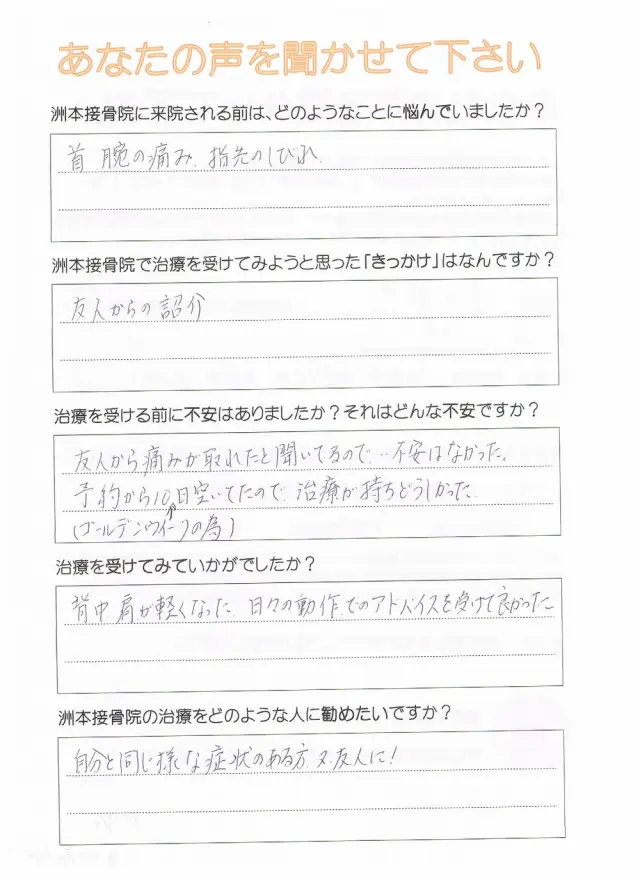 あなたの声を聞かせて下さい
洲本接骨院に来院される前は、どのようなことに悩んでいましたか？
首 腕の痛み. 指先のしびれ.
洲本接骨院で治療を受けてみようと思った「きっかけ」はなんですか？
友人からの詔介
治療を受ける前に不安はありましたか？それはどんな不安ですか？
友人から痛みが取れたと聞いてるので‥不安はなかった。
予約から10日空いてたので. 治療が持ちどうしかった.
(ゴールデンウィークの為)
治療を受けてみていかがでしたか？
背中 肩が軽くなった. 日々の動作でのアドバイスを受けて良かったこ
洲本接骨院の治療をどのような人に勧めたいですか？
自分と同じ様な症状のある方 又友人に!